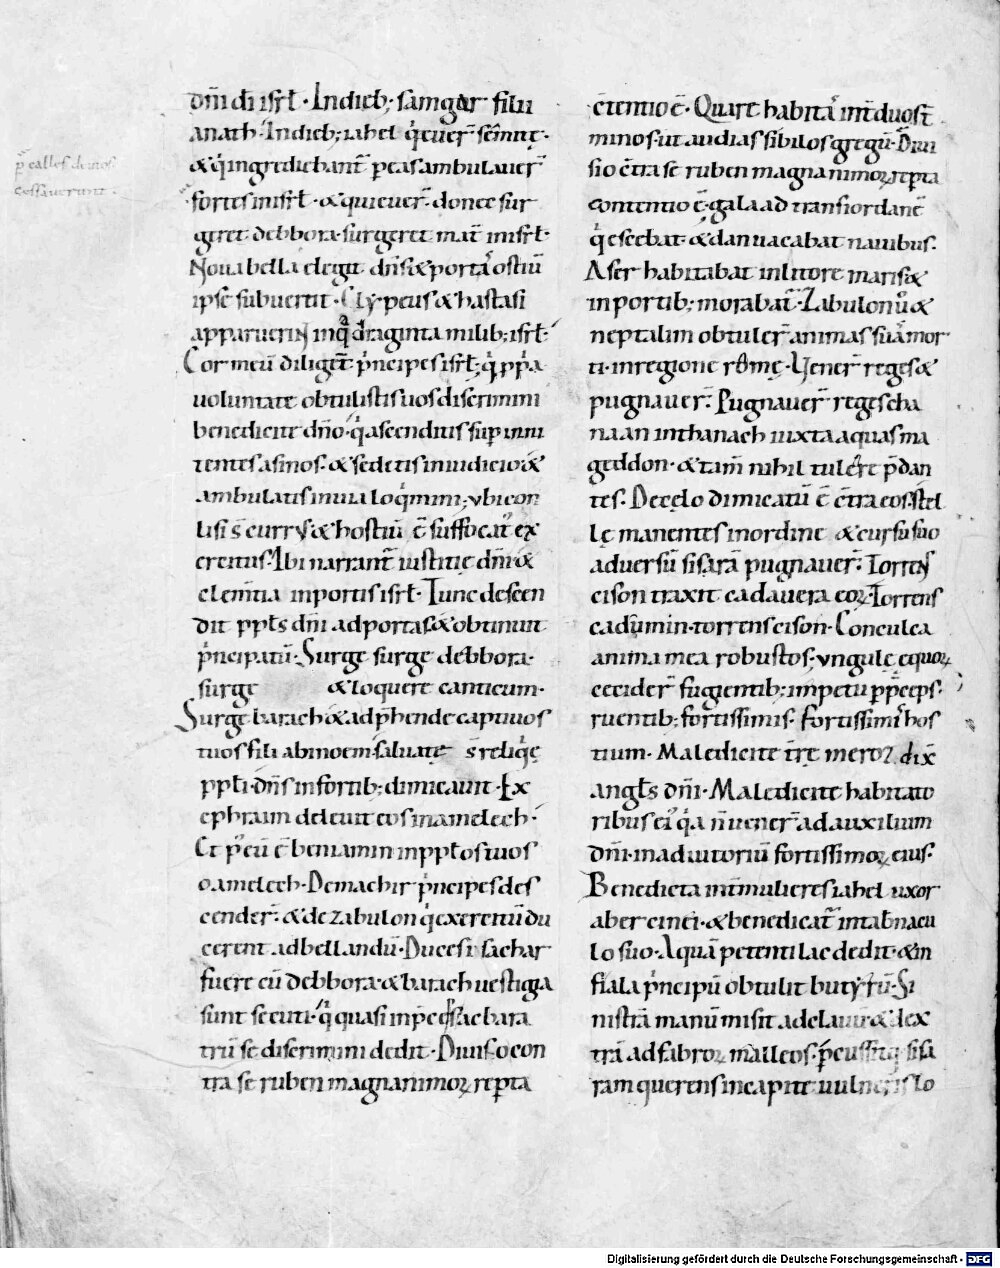 p̄ calles deuios
cessauerunt.
dn̄i dī isrl̄ · In dieb; samgar filii
anath · In dieb; iahel q̇euer̄ semite ·
& q̇ ingrediebant̄ p eas ambulauer̄
fortes in isrl̄ · & quieuer̄ donec sur
geret debbora · surgeret mat̄ in isrl̄ ·
Noua bella elegit dn̄s & portaˀ ostiū
ipse subuertit · Clypeus & hasta si
apparuerīt in qͣdraginta milib; isrl̄ ·
Cor meū diligit p̍ncipes isrl̄; q̍ ppͥa
uoluntate obtulistis uos discrimini
benedicite dn̄o · q̍ ascenditis sup niti
tentes asinos · & sedetis in iudicio &
ambulatis in uia loq̍mini; vbi con
lisi s̄ currus & hostiū ē suffocatˀ ex
ercitus · Ibi narrant̄ iustitię dn̄i &
clem̄tia in fortis isrl̄ · Tunc descen
dit ppl̄s dn̄i ad portas & obtinuit
p̍ncipatū · Surge surge debbora ·
surge & loquere canticum ·
Surge barach & adp̄hende captiuos
tuos fili abinoem · saluatę s̄ reliq̍ę
ppl̄i · dn̄s in fortib; dimicauit · Ex
ephraim deleuit eos in amelech ·
Et p̍ eū ē beniamin in ppl̄os tuos
o amelech · De machir p̍ncipes des
cender̄ · & de zabulon q̍ exercitū du
cerent ad bellandū · Duces isachar
fuere cū debbora · & barach uestigia
sunt secuti · q̍ quasi in p̄ceps ac bara
trū se discrimini dedit · Diuiso con
tra se ruben magnanimoꝝ repta
c̄tentio ē · Quare habitaˀ int̄ duos t̄
minos · ut audias sibilos gregū · Diui
sio c̄tra se ruben magnanimoꝝ repta
contentio ē · galaad transiordanē
q̍escebat · & dan uacabat nauibus ·
Aser habitabat in litore maris &
in portib; morabat̄ · Zabulon ū &
neptalim obtuler̄ animas suas mor
ti · in regione romę · Uener̄ reges &
pugnauer̄ · Pugnauer̄ reges cha
naan in thanach iuxta aquas ma
geddon · & tam̄ nihil tulere p̄dan
tes · De celo dimicatū ē c̄tra eos · stel
lę manentes in ordine & cursu suo
aduersū sisarā pugnauer̄ · Torrens
cison traxit cadauera eoꝝ · Torrens
cadumin · torrens cison · Conculca
anima mea robustos · vngulę equoꝝ
cecider̄ fugientib; impetu p p̄ceps
ruentib; fortissimis · fortissimi hos
tium · Maledicite t̄rę meroz dix̄
angl̄s dn̄i · Maledicite habitato
ribus eiˀ q̍a n̄ uener̄ ad auxilium
dn̄i · in adiutoriū fortissimoꝝ eius ·
Benedicta int̄ mulieres iahel uxor
aber cinei · & benedicat̄ in tab̄nacu
lo suo · Aquā petenti lac dedit · & in
fiala p̍ncipū obtulit butyrū · Si
nistrā manū misit ad clauū & dex
trā ad fabroꝝ malleos · p̄cussitq; sisa
ram querens in capite uulneris lo
Digitalisierung gefördert durch die Deutsche Forschungsgemeinschaft · DFG